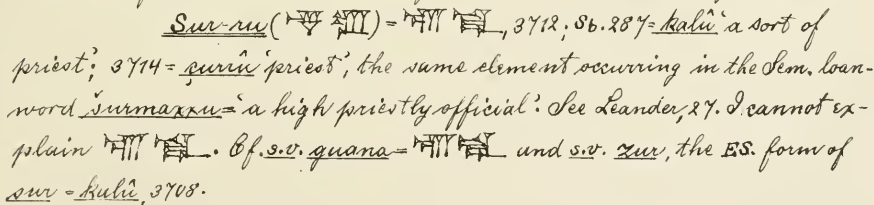 Sur-ru (𒋩 𒊒) = , 3712; Sb. 287 = kalû 'a sort of
priest'; 3714 = surrû 'priest', the same element occurring in the Sem. loan-
word šurmaxxu = 'a high priestly official'. See Leander, 27. I cannot ex-
plain . Cf. s.v. guana = and s.v. zur, the ES. form of
sur = kulû, 3708.